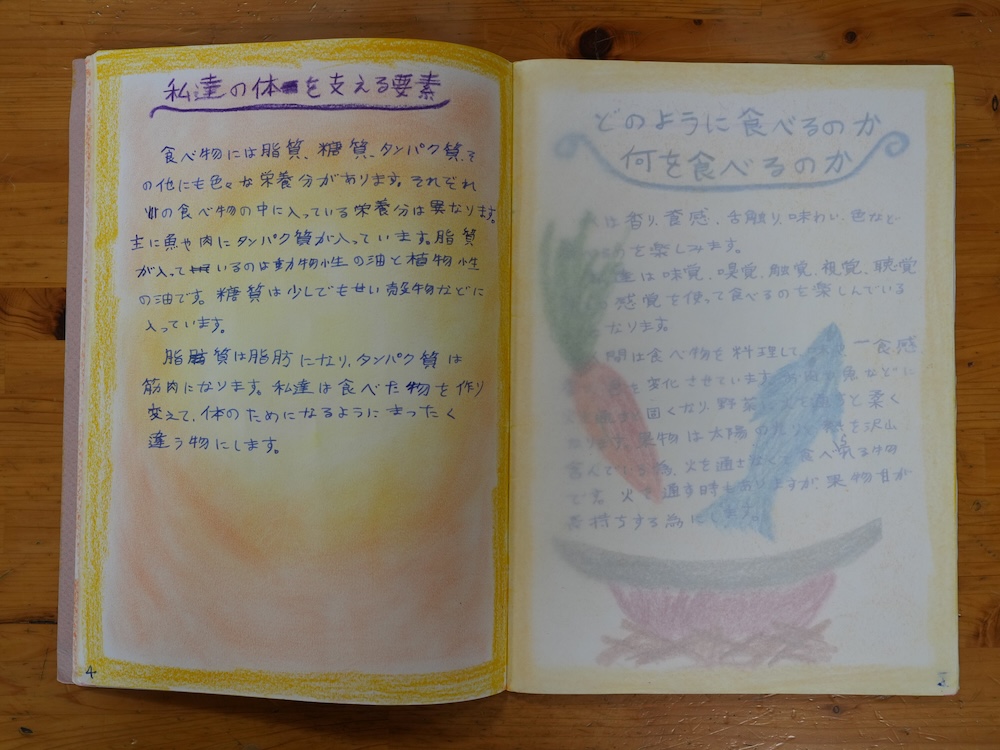 私達の体を支える要素
食べ物には脂質、糖質、タンパク質、そ
の他にも色々な栄養分があります。それぞれ
の食べ物の中に入っている栄養分は異なります。
主に魚や肉にタンパク質が入っています。脂質
が入っているのは動物性の油と植物性
の油です。糖質は少しでも甘い穀物などに
入っています。
脂質は脂肪になり、タンパク質は
筋肉になります。私達は食べた物を作り
変えて、体のためになるようにまったく
違う物にします。
4
どのように食べるのか
何を食べるのか
は香り、食感、舌触り、味わい、色など
を楽しみます。
達は味覚、嗅覚、触覚、視覚、聴覚
感覚を使って食べるのを楽しんでいる
なります。
間は食べ物を料理して 食感
を変化させています。 魚などに
固くなり、野菜 と柔く
ます。果物は太陽の光 を沢山
含んでいる為、火を通さなくても食べれる物
火を通す時もありますが、果物自が
長持ちする為に